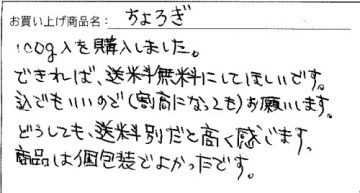 お買い上げ商品名： ちょろぎ
100g入を購入しました。
できれば、送料無料にしてほしいです。
込でもいいので(割高になっても)お願いします。
どうしても、送料別だと高く感じます。
商品は個包装でよかったです。